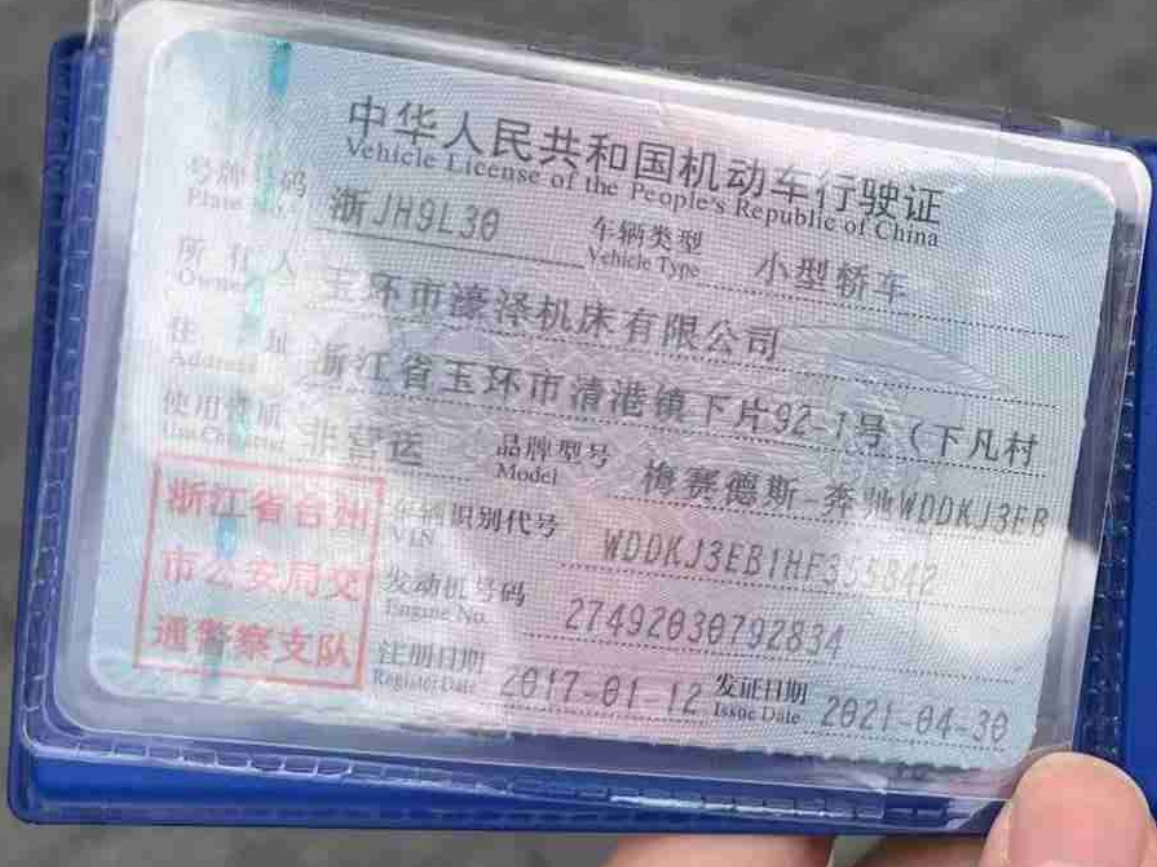 中华人民共和国机动车行驶证
Vehicle License of the People's Republic of China
号牌号码 浙JH9L30 车辆类型 小型轿车
Plate No. Vehicle Type
所有人 玉环市濠泽机床有限公司
Owner
住址 浙江省玉环市清港镇下片92-1号(下凡村
Address
使用性质 非营运 品牌型号 梅赛德斯-奔驰WDDKJ3EB
Use Character Model
浙江省台州
市公安局交
通警察支队
车辆识别代号 WDDKJ3EB1HF355842
VIN
发动机号码 27492030792834
Engine No.
注册日期 2017-01-12 发证日期 2021-04-30
Register Date Issue Date